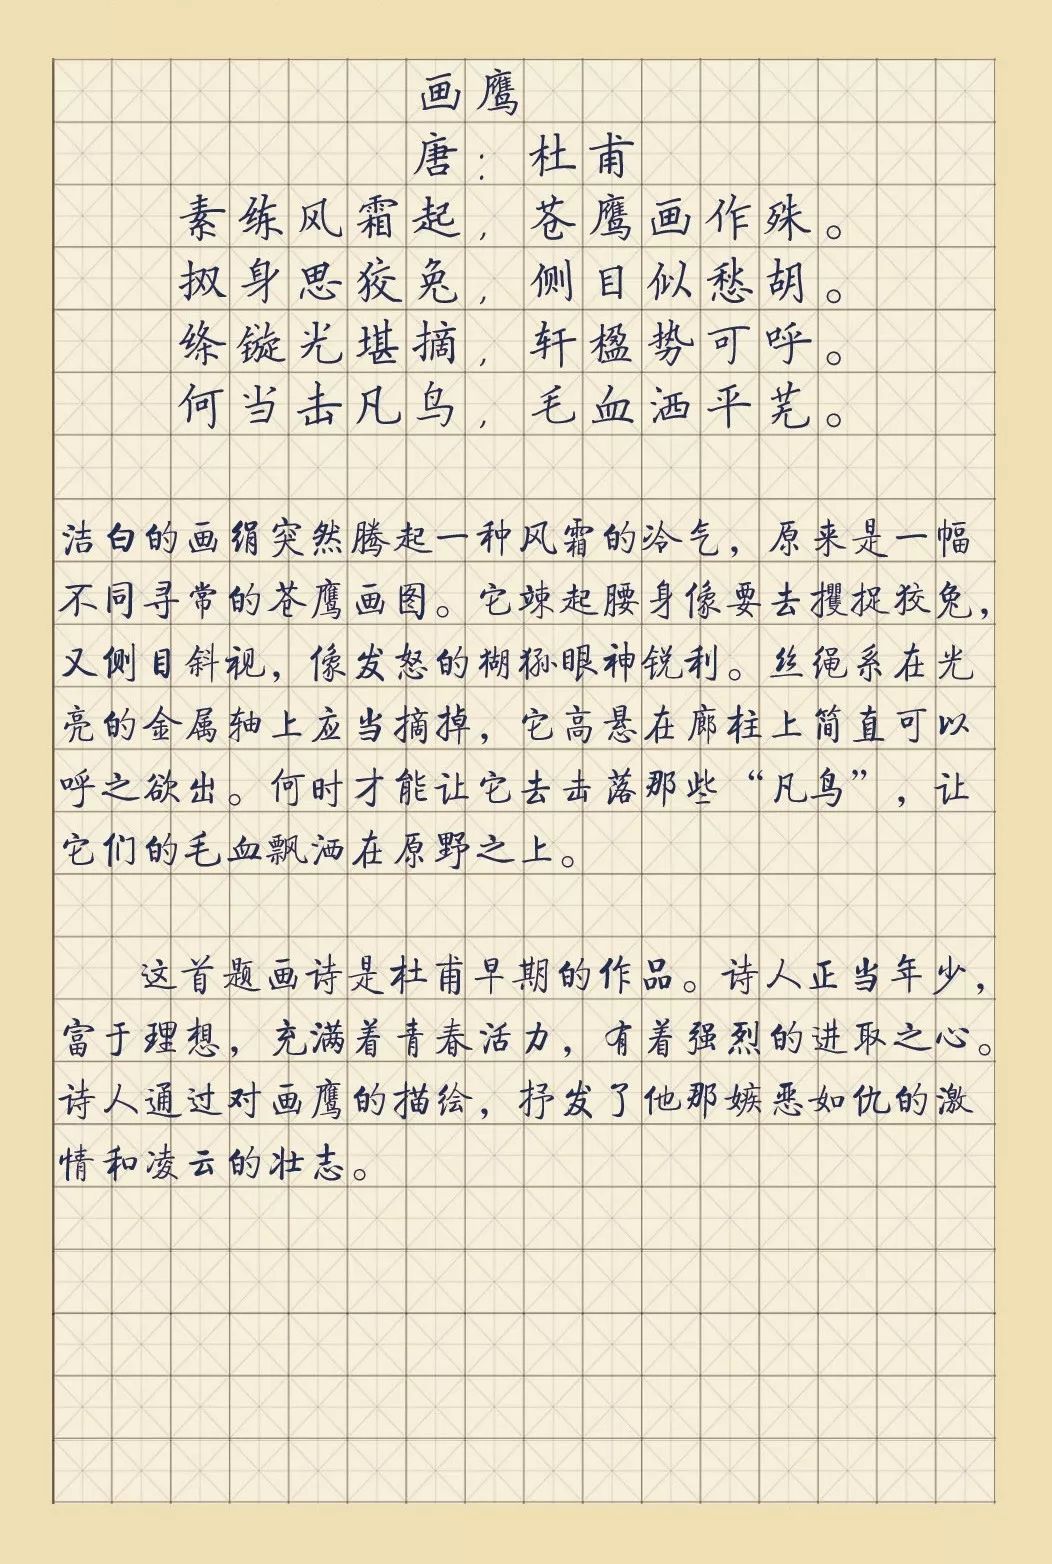 画鹰
唐：杜甫
素练风霜起，苍鹰画作殊。
㧐身思狡兔，侧目似愁胡。
绦镟光堪摘，轩楹势可呼。
何当击凡鸟，毛血洒平芜。
洁白的画绢突然腾起一种风霜的冷气，原来是一幅
不同寻常的苍鹰画图。它竦起腰身像要去攫捉狡兔，
又侧目斜视，像发怒的猢狲眼神锐利。丝绳系在光
亮的金属轴上应当摘掉，它高悬在廊柱上简直可以
呼之欲出。何时才能让它去击落那些“凡鸟”，让
它们的毛血飘洒在原野之上。
这首题画诗是杜甫早期的作品。诗人正当年少，
富于理想，充满着青春活力，有着强烈的进取之心。
诗人通过对画鹰的描绘，抒发了他那嫉恶如仇的激
情和凌云的壮志。